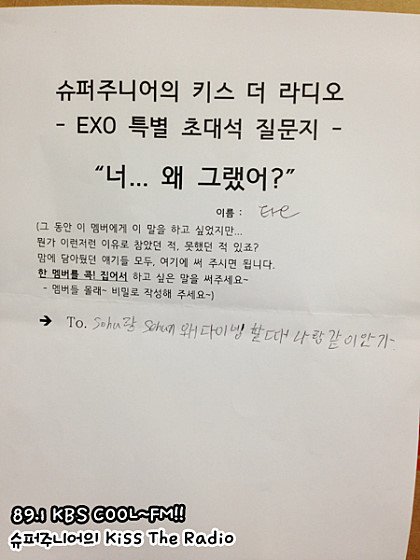 슈퍼주니어의 키스 더 라디오
- EXO 특별 초대석 질문지 -
“너... 왜 그랬어?”
이름 : 타오
(그 동안 이 멤버에게 이 말을 하고 싶었지만...
뭔가 이런저런 이유로 참았던 적, 못했던 적 있죠?
맘에 담아뒀던 얘기들 모두, 여기에 써 주시면 됩니다.
한 멤버를 콕! 집어서 하고 싶은 말을 써주세요~
- 멤버들 몰래~ 비밀로 작성해 주세요~)
➔ To. Suhu랑 Sehun 왜 다이빙 할때 나랑 같이 안가.
89.1 KBS COOL~FM!!
슈퍼주니어의 Kiss The Radio